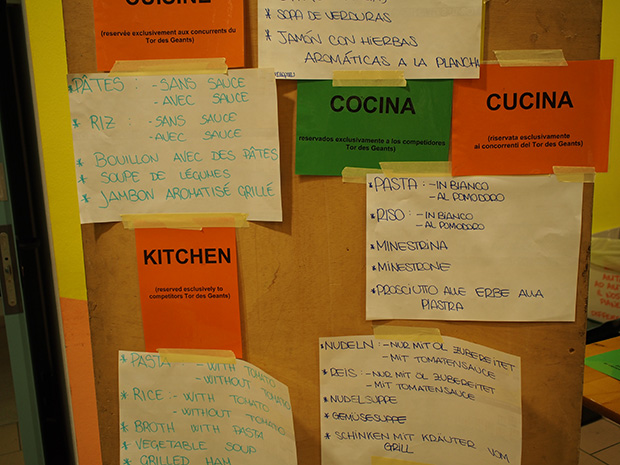 CUISINE
(reservée exclusivement aux concurrents du
Tor des Geants)
* SOPA DE VERDURAS
* JAMÓN CON HIERBAS
AROMÁTICAS A LA PLANCHA
* PÂTES : - SANS SAUCE
- AVEC SAUCE
* RIZ : - SANS SAUCE
- AVEC SAUCE
* BOUILLON AVEC DES PÂTES
* SOUPE DE LÉGUMES
* JAMBON AROMATISÉ GRILLÉ
COCINA
(reservados exclusivamente a los competidores
Tor des Geants)
CUCINA
(riservata esclusivamente
ai concorrenti del Tor des Geants)
* PASTA : - IN BIANCO
- AL POMODORO
* RISO : - IN BIANCO
- AL POMODORO
* MINESTRINA
* MINESTRONE
* PROSCIUTTO ALLE ERBE ALLA
PIASTRA
KITCHEN
(reserved exclusively to
competitors Tor des Geants)
* PASTA : - WITH TOMATO
- WITHOUT TOMATO
* RICE : - WITH TOMATO
- WITHOUT TOMATO
* BROTH WITH PASTA
* VEGETABLE SOUP
* GRILLED HAM
* NUDELN : - NUR MIT ÖL ZUBEREITET
- MIT TOMATENSAUCE
* REIS : - NUR MIT ÖL ZUBEREITET
- MIT TOMATENSAUCE
* NUDELSUPPE
* GEMÜSESUPPE
* SCHINKEN MIT KRÄUTER VOM
GRILL